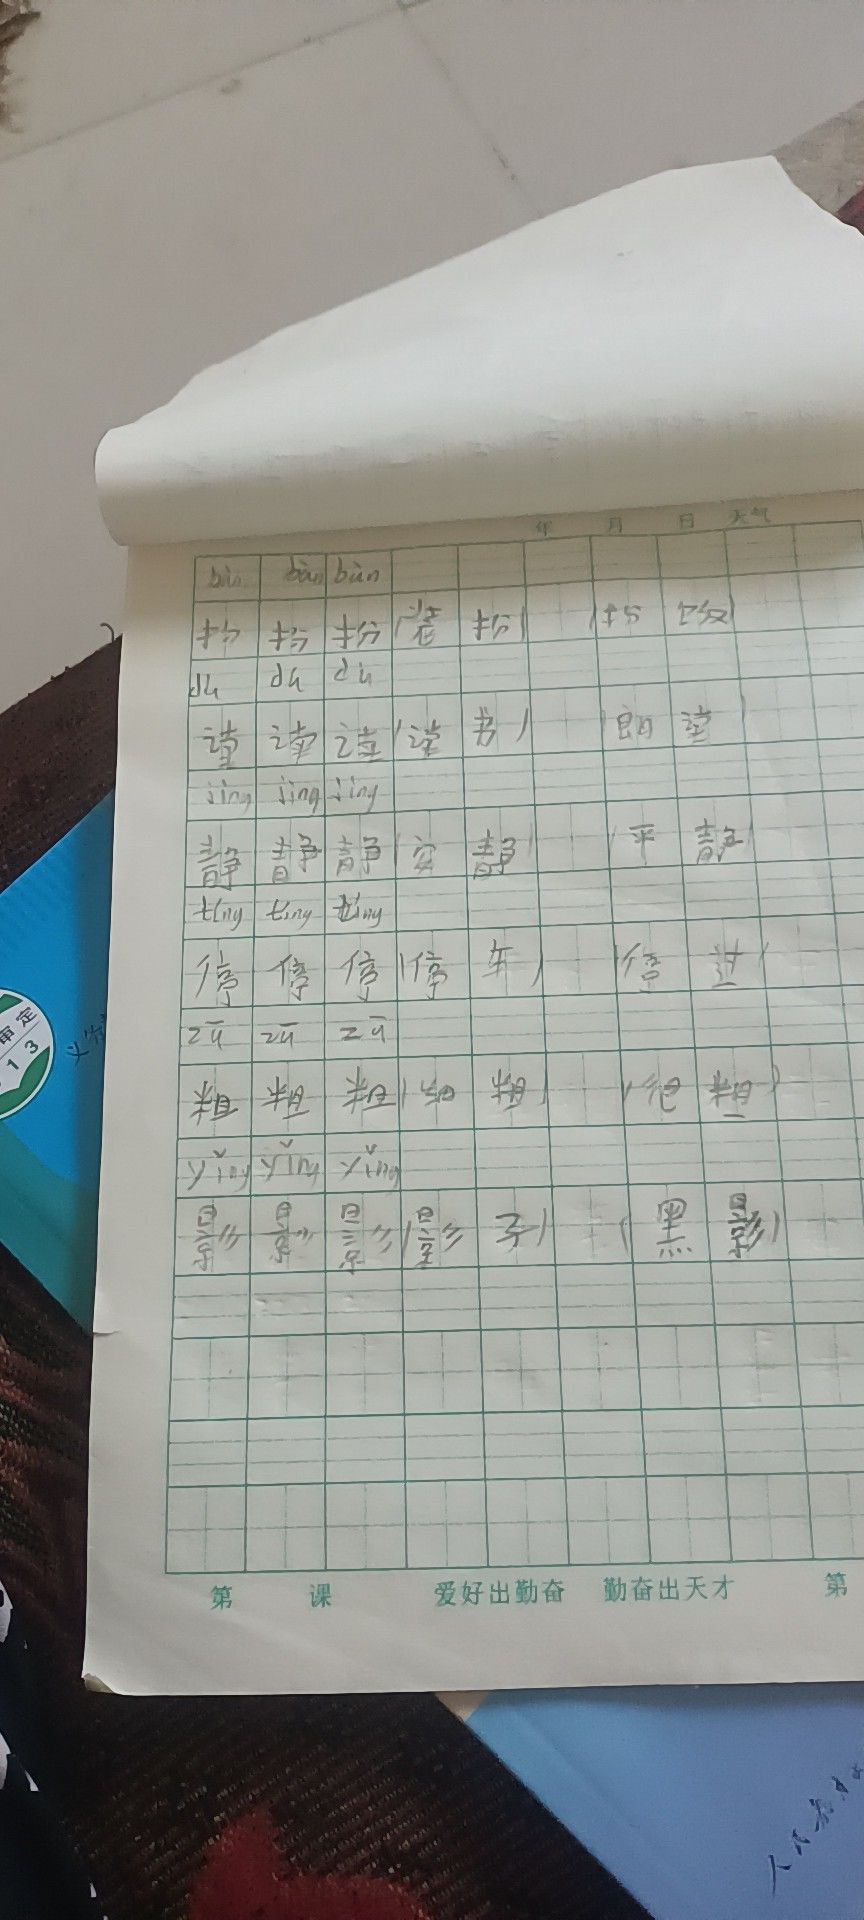 年 月 日 天气
bàn bàn bàn
扮 扮 扮(装 扮) (扮
dú dú dú
读 读 读(读 书) (朗 读)
jìng jìng jìng
静 静 静(安 静) (平 静)
tíng tíng tíng
停 停 停(停 车) (停
zū zū zū
粗 粗 粗( 粗) ( 粗)
yǐng yǐng yǐng
影 影 影(影 子) (黑 影)
第 课 爱好出勤奋 勤奋出天才 第
审定
13